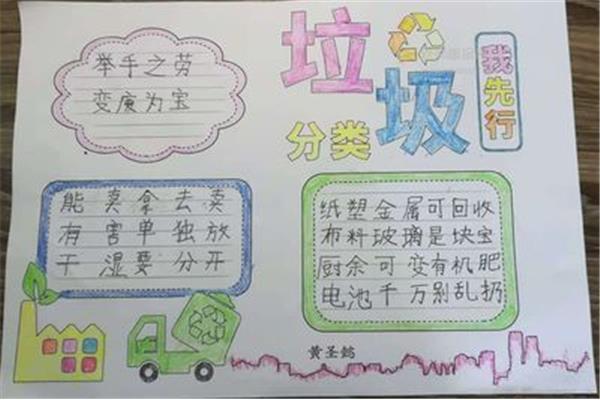 举手之劳
变庚为宝
垃圾
分类
我先行
能卖拿去卖
有害单独放
干湿要分开
纸塑金属可回收
布料玻璃是块宝
厨余可变有机肥
电池千万别乱扔
黄圣懿